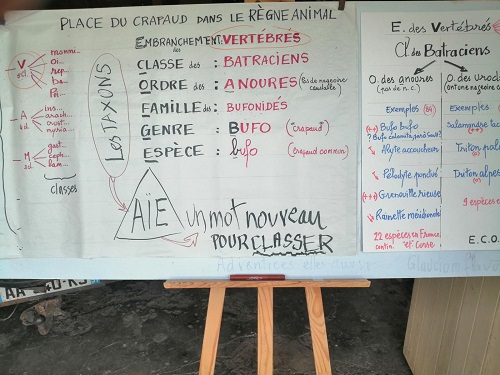 PLACE DU CRAPAUD DANS LE RÈGNE ANIMAL
EMBRANCHEMENT des : VERTÉBRÉS
CLASSE des : BATRACIENS
ORDRE des : ANOURES (Pas de nageoire caudale)
FAMILLE des : BUFONIDÉS
GENRE : BUFO ("crapaud")
ESPÈCE : bufo (crapaud commun)
Les TAXONS
V
sd.
mammi...
oi...
rep...
ba...
Poi...
A
sd.
ins...
arach...
crust...
myria...
M
sd.
gast...
ceph...
lam...
classes
AÏE un mot nouveau
POUR CLASSER
E. des Vertébrés
Cl. des Batraciens
O. des anoures
(pas de n. c.)
Exemples
Bufo bufo
Alyte accoucheur
Pélodyte ponctué
Grenouille rieuse
Rainette méridionale
22 espèces en France
contin. et Corse
O. des Urod
(ont une nageoire ca
Exemples
Salamandre tac
Triton pal
Triton alpes
9 espèces e
E.C.O.